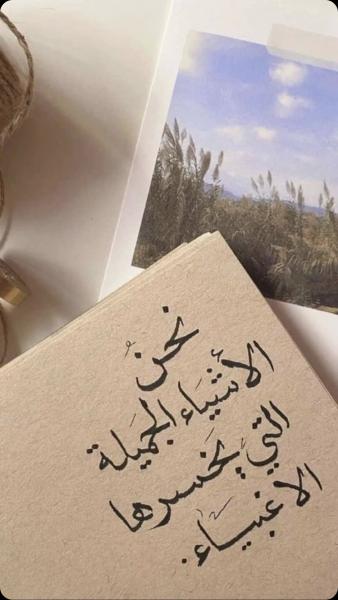 نحنُ
الأشيَاء الجميَلة
التي يَخسرها
الاغبيَاء.